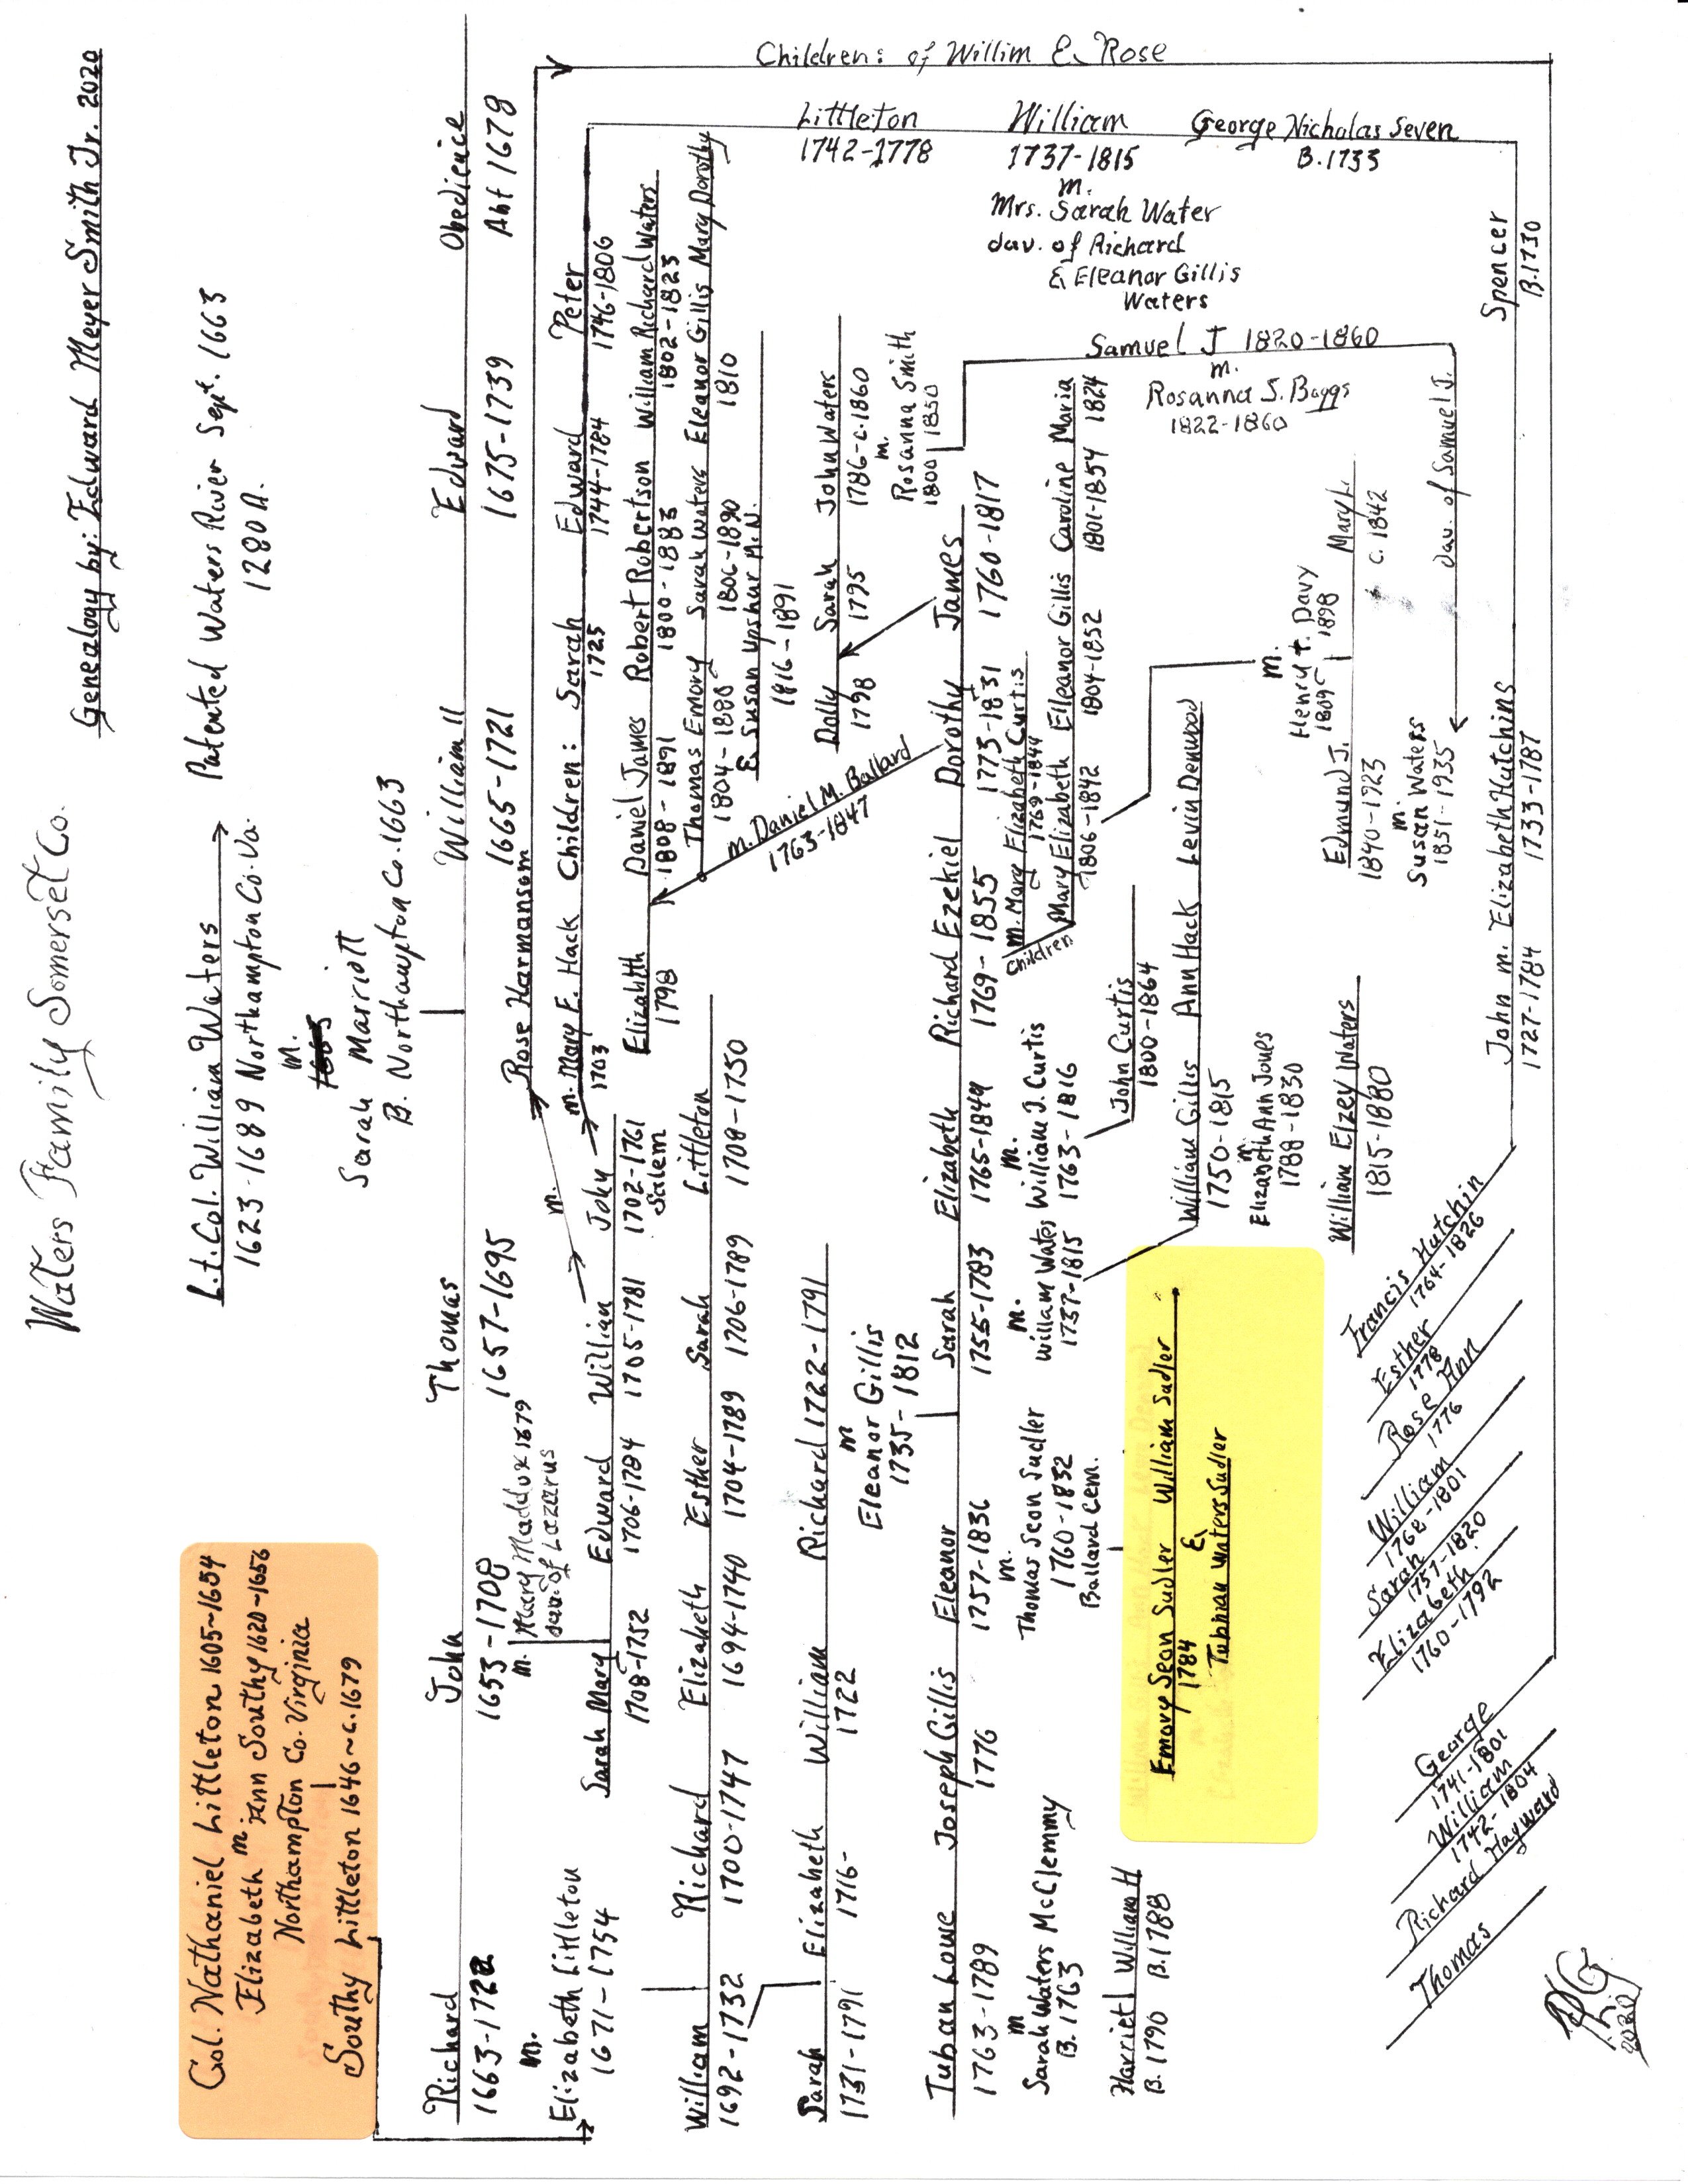 Waters Family Somerset Co.
Genealogy by: Edward Meyer Smith Jr. 2020
Col. Nathaniel Littleton 1605-1654
m.
Elizabeth Ann Southy 1620-1656
Northampton Co. Virginia
Southy Littleton 1646~c.1679
Lt. Col. William Waters
1623-1689 Northampton Co. Va.
m.
Sarah Marriott
B. Northampton Co. 1663
Patented Waters River Sept. 1663
1280 A.
Richard John Thomas William II Edward Obedience
1653-1708 1657-1695 1665-1721 1675-1739 Abt 1678
m.
Elizabeth Littleton
1671-1754
m. Mary Maddux 1679
dau. of Lazarus
Rose Harmanson
Children: of Willim & Rose
Sarah Mary Edward William John
1708-1752 1706-1784 1705-1781 1702-1761
Salem
m.
m. Mary E. Hack Children: Sarah Edward Peter
1703 1725 1744-1784 1746-1806
Littleton
1742-1778
William
1737-1815
m.
Mrs. Sarah Water
dau. of Richard
& Eleanor Gillis
Waters
George Nicholas Seven
B. 1733
Elizabeth Daniel James Robert Robertson William Richard Waters
1798 1808-1891 1800-1883 1802-1823
Thomas Emory Sarah Waters Eleanor Gillis Mary Dorothy
1806-1890 1810
E. Susan Upshur M.N.
1816-1891
William Richard Elizabeth Esther Sarah Littleton
1692-1732 1700-1747 1694-1740 1704-1789 1706-1789 1708-1750
m. Daniel M. Ballard
1763-1847
Dolly Sarah John Waters
1798 1795 1786-c.1860
m.
Rosanna Smith
1800 1850
Sarah Elizabeth William Richard 1722-1791
1731-1791 1716- 1722
m
Eleanor Gillis
1735-1812
Tuban Lowe Joseph Gillis Eleanor Sarah Elizabeth Richard Ezekiel Dorothy James
1763-1789 1776 1757-1836 1755-1783 1765-1849 1769-1855 1773-1831 1760-1817
m
Sarah Waters McClemmy
B. 1763
m.
Thomas Seon Sudler
1760-1832
Ballard Cem.
m.
William Waters
1737-1815
m.
William J. Curtis
1763-1816
m. Mary Elizabeth Curtis
1769-1844
Children
Mary Elizabeth Elleanor Gillis Caroline Maria
1806-1842 1804-1852 1801-1854 1824
Samuel J 1820-1860
m.
Rosanna S. Boggs
1822-1860
Harriet William H
B. 1790 B. 1788
Emory Seon Sudler William Sudler
1784 &
Tubman Waters Sudler
John Curtis
1800-1864
William Gillis Ann Hack Levin Denwood
1750-1815
m
Elizabeth Ann Jones
1788-1830
William Elzey Waters
1815-1880
m.
Henry t. Davy
1809 1898
Edmund J. Mary L.
1840-1923 c. 1842
m
Susan Waters
1851-1935
dau. of Samuel J.
Spencer
B. 1730
John m. Elizabeth Hutchins
1727-1784 1733-1787
Francis Hutchin
1764-1826
Esther
1778
Rose Ann
1776
William
1768-1801
Sarah
1757-1820
Elizabeth
1760-1792
George
1741-1801
William
1742-1804
Richard Hayward
Thomas
2020